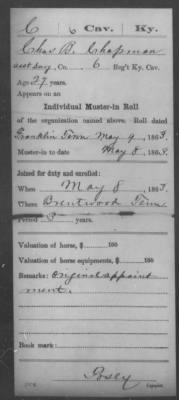 C 6 Cav. Ky.
Chas B. Chapman
asst Surg, Co. 6 Reg't Ky. Cav.
Age 27 years.
Appears on an
Individual Muster-in Roll
of the organization named above. Roll dated
Franklin Tenn May 9, 1863.
Muster-in to date May 8, 1863.
Joined for duty and enrolled:
When May 8, 1863.
Where Brentwood Tenn
Period 3 years.
Valuation of horse, $ 100
Valuation of horse equipments, $ 100
Remarks: Original appoint
ment.
Book mark:
Copyist.